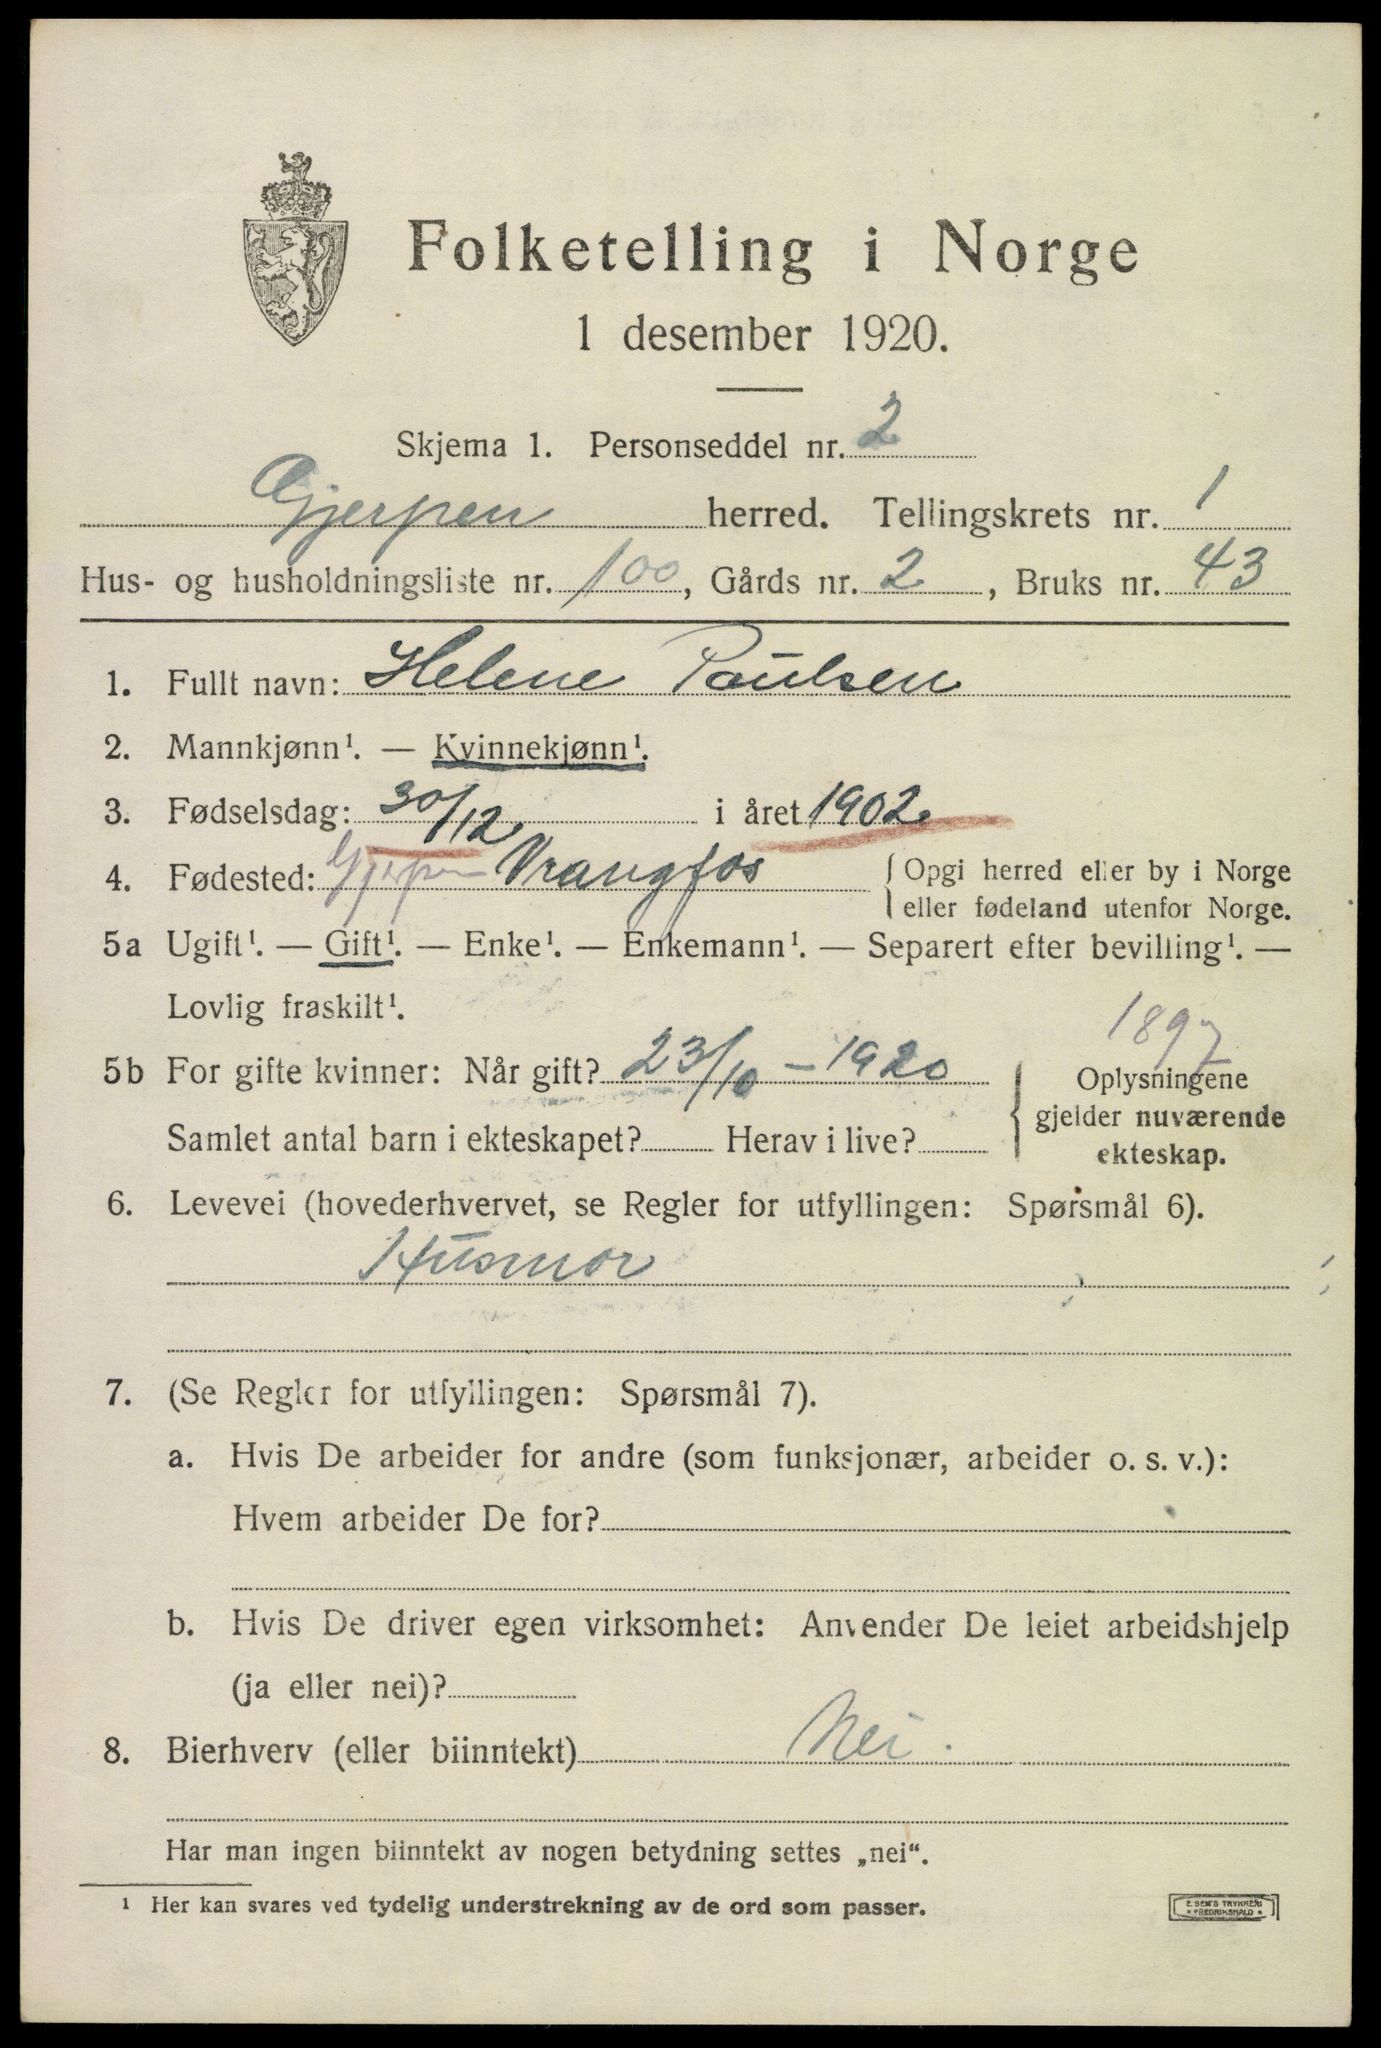 Folketelling i Norge
1 desember 1920.
Skjema 1. Personseddel nr. 2
Gjerpen herred. Tellingskrets nr. 1
Hus- og husholdningsliste nr. 100, Gårds nr. 2, Bruks nr. 43
1. Fullt navn: Helene Paulsen
2. Mannkjønn¹. — Kvinnekjønn¹.
3. Fødselsdag: 30/12 i året 1902.
4. Fødested: Gjerpen Vrangfos { Opgi herred eller by i Norge
eller fødeland utenfor Norge.
5a Ugift¹. — Gift¹. — Enke¹. — Enkemann¹. — Separert efter bevilling¹. —
Lovlig fraskilt¹.
1897
5b For gifte kvinner: Når gift? 23/10 – 1920
Samlet antal barn i ekteskapet? Herav i live?
{ Oplysningene
gjelder nuværende
ekteskap.
6. Levevei (hovederhvervet, se Regler for utfyllingen: Spørsmål 6).
Husmor
7. (Se Regler for utfyllingen: Spørsmål 7).
a. Hvis De arbeider for andre (som funksjonær, arbeider o. s. v.):
Hvem arbeider De for?
b. Hvis De driver egen virksomhet: Anvender De leiet arbeidshjelp
(ja eller nei)?
8. Bierhverv (eller biinntekt) Nei.
Har man ingen biinntekt av nogen betydning settes „nei“.
¹ Her kan svares ved tydelig understrekning av de ord som passer.
E. SEM'S TRYKKERI
• FREDRIKSHALD •